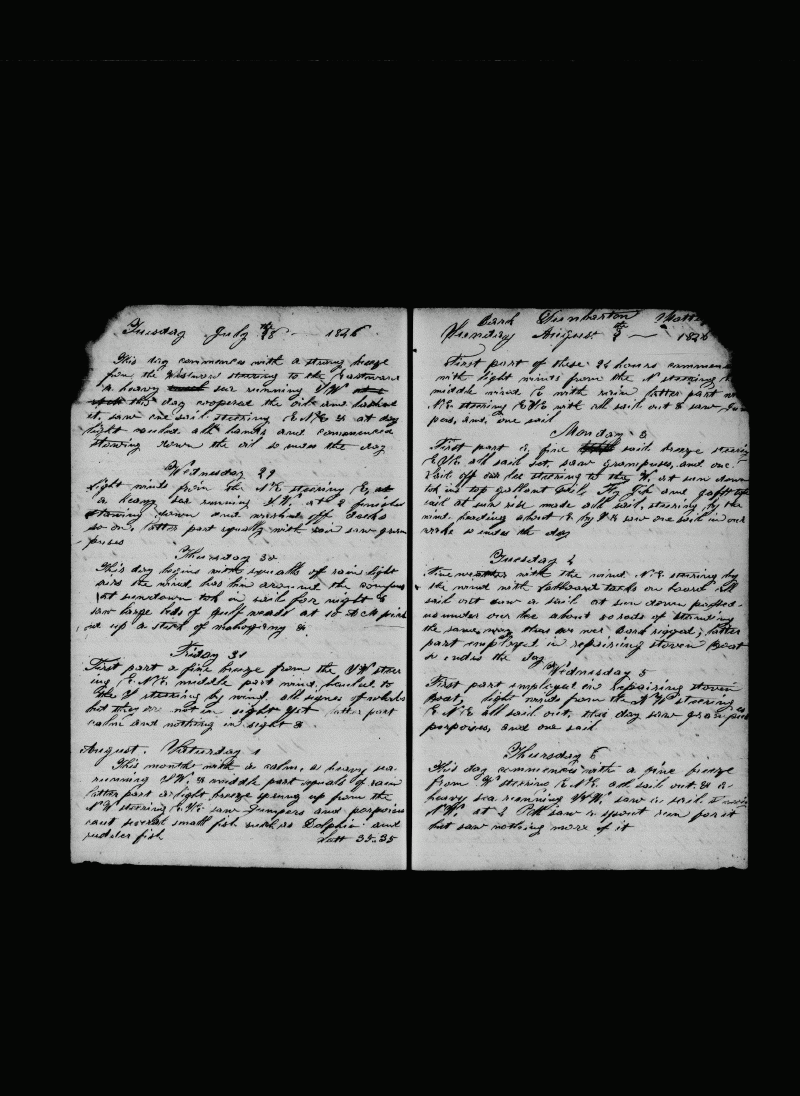 Tuesday July 28th 1846
This day commences with a strong breeze
from the Westward steering to the Eastward
a heavy sea running SW
this day cooperd the oil and
it, saw one sail steering ENE & at
light called all hands and commenced
stowing down the oil so ends the day
Wednesday 29
Light winds from the NE steering E,
a heavy sea running SW, at 2 finished
stowing down and washed off decks
so on, latter part squally with rain saw gram
puses
Thursday 30
This day begins with squalls of rain light
airs the wind has ben around the compass
at sundown took in sail for night &
saw large beds of gulf weads at 10 AM pick
ed up a stick of mahogany &.
Friday 31
First part a fine breeze from the SW steer
ing ENE middle part wind hauled to
the S steering by wind, all signes of whales
but they are not in sight yet latter part
calm and nothing in sight &
August. Saturday 1
This month with a calm, a heavy sea
running SW. & middle part squals of rain
latter part a light breeze sprung up from the
NW steering saw Jumpers and porpoises
caut several small fish such as Dolphin and
rudder fish
Latt 35..35
Bark
Sunday August 2 1846
First part of these 24 hours commenc
with light winds from the N steering E
middle wind E with rain, latter part
NE steering with all sail out & saw
puses, and, one sail
Monday 3
First part a fine sail breeze steering
all sail set, saw grampuses, and one
sail off our lee steering to the W. at sun down
took in top gallant sails, Fly Jib and gafft top
sail at sun rise made all sail, steering by the
wind heading about E by saw one sail in our
wake so ends the day
Tuesday 4
Fine weather with the wind NE steering by
the wind with larboard tacks on board all
sail out saw a sail at sun down passed
us under our lee about 40 rods of steering
the same way thus as wer Bark rigged, latter
part employed in repairing stoven Boat
so endes the day
Wednesday 5
First part employed in Repairing stoven
Boat, light winds from the steering
ENE all sail out, this day saw grampus
porpoises, and one sail
Thursday 6
This day commences with a fine breeze
from W steering ENE all sail out & a
heavy sea running saw a sail
NW. at saw a spout run for it
but saw nothing more of it